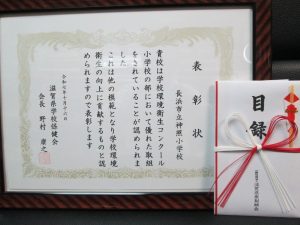 表彰状
長浜市立神照小学校
貴校は学校環境衛生コンクール
小学校の部において優れた取組
をされていることが認められま
した
これは他の模範となり学校環境
衛生の向上に貢献するものと認
められますので表彰します
令和七年 月十六日
滋賀県学校保健会
会長 野村 康之
目録